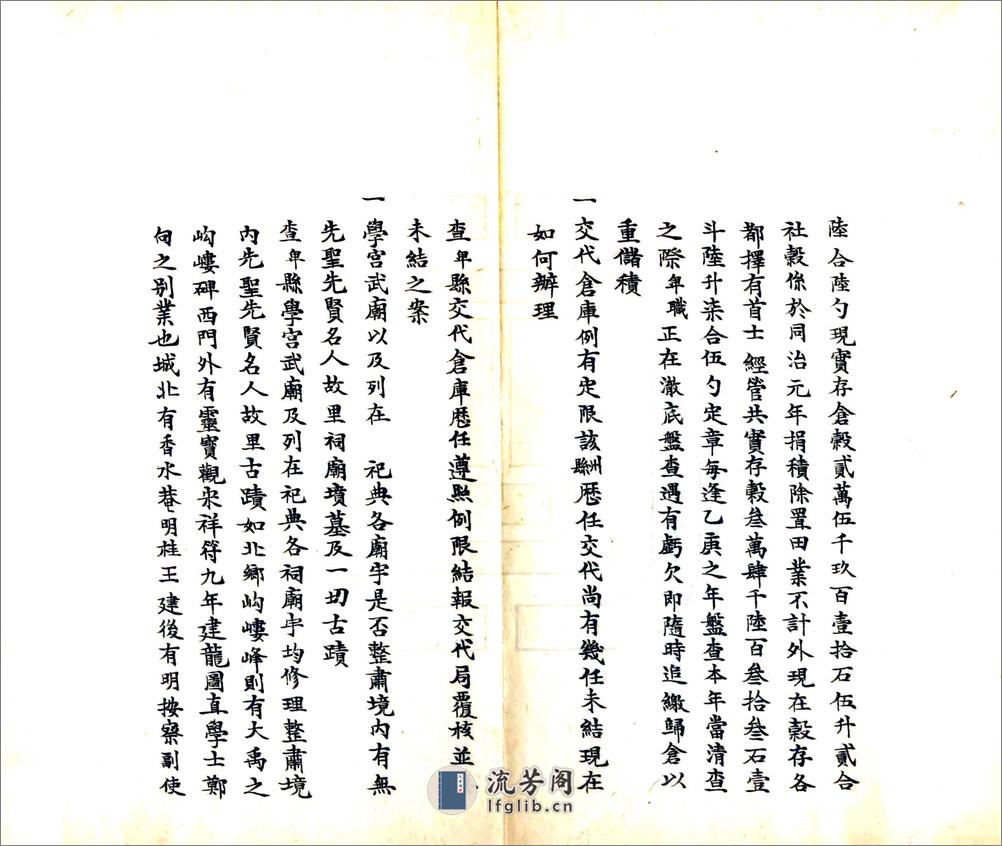 陸合陸勺現實存倉穀貳萬伍千玖百壹拾石伍升貳合
社穀係於同治元年捐積除置田業不計外現在穀存各
都擇有首士經管共實存穀叁萬肆千陸百叁拾叁石壹
斗陸升柒合伍勺定章每逢乙庚之年盤查本年當清查
之際卑職正在澈底盤查遇有虧欠即隨時追繳歸倉以
重儲積
一交代倉庫例有定限該州縣歷任交代尚有幾任未結現在
如何辦理
查卑縣交代倉庫歷任遵照例限結報交代局覆核並
未結之案
一學宮武廟以及列在 祀典各廟宇是否整肅境内有無
先聖先賢名人故里祠廟墳墓及一切古蹟
查卑縣學宮武廟及列在祀典各祠廟宇均修理整肅境
内先聖先賢名人故里古蹟如北鄉岣嶁峰則有大禹之
岣嶁碑西門外有靈寶觀宋祥符九年建龍圖直學士鄭
向之别業也城北有香水菴明桂王建後有明按察副使
流芳阁
lfglib.cn